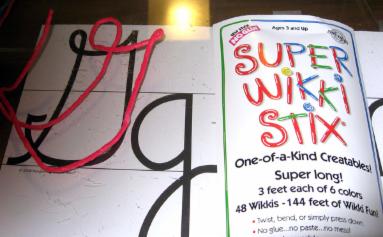 Gg
Ages 3 and Up
SUPER
WIKKI
STIX
One-of-a-Kind Creatables!
Super long!
3 feet each of 6 colors
48 Wikkis - 144 feet of Wikki Fun!
• Twist, bend, or simply press down.
• No glue...no paste...no mess!